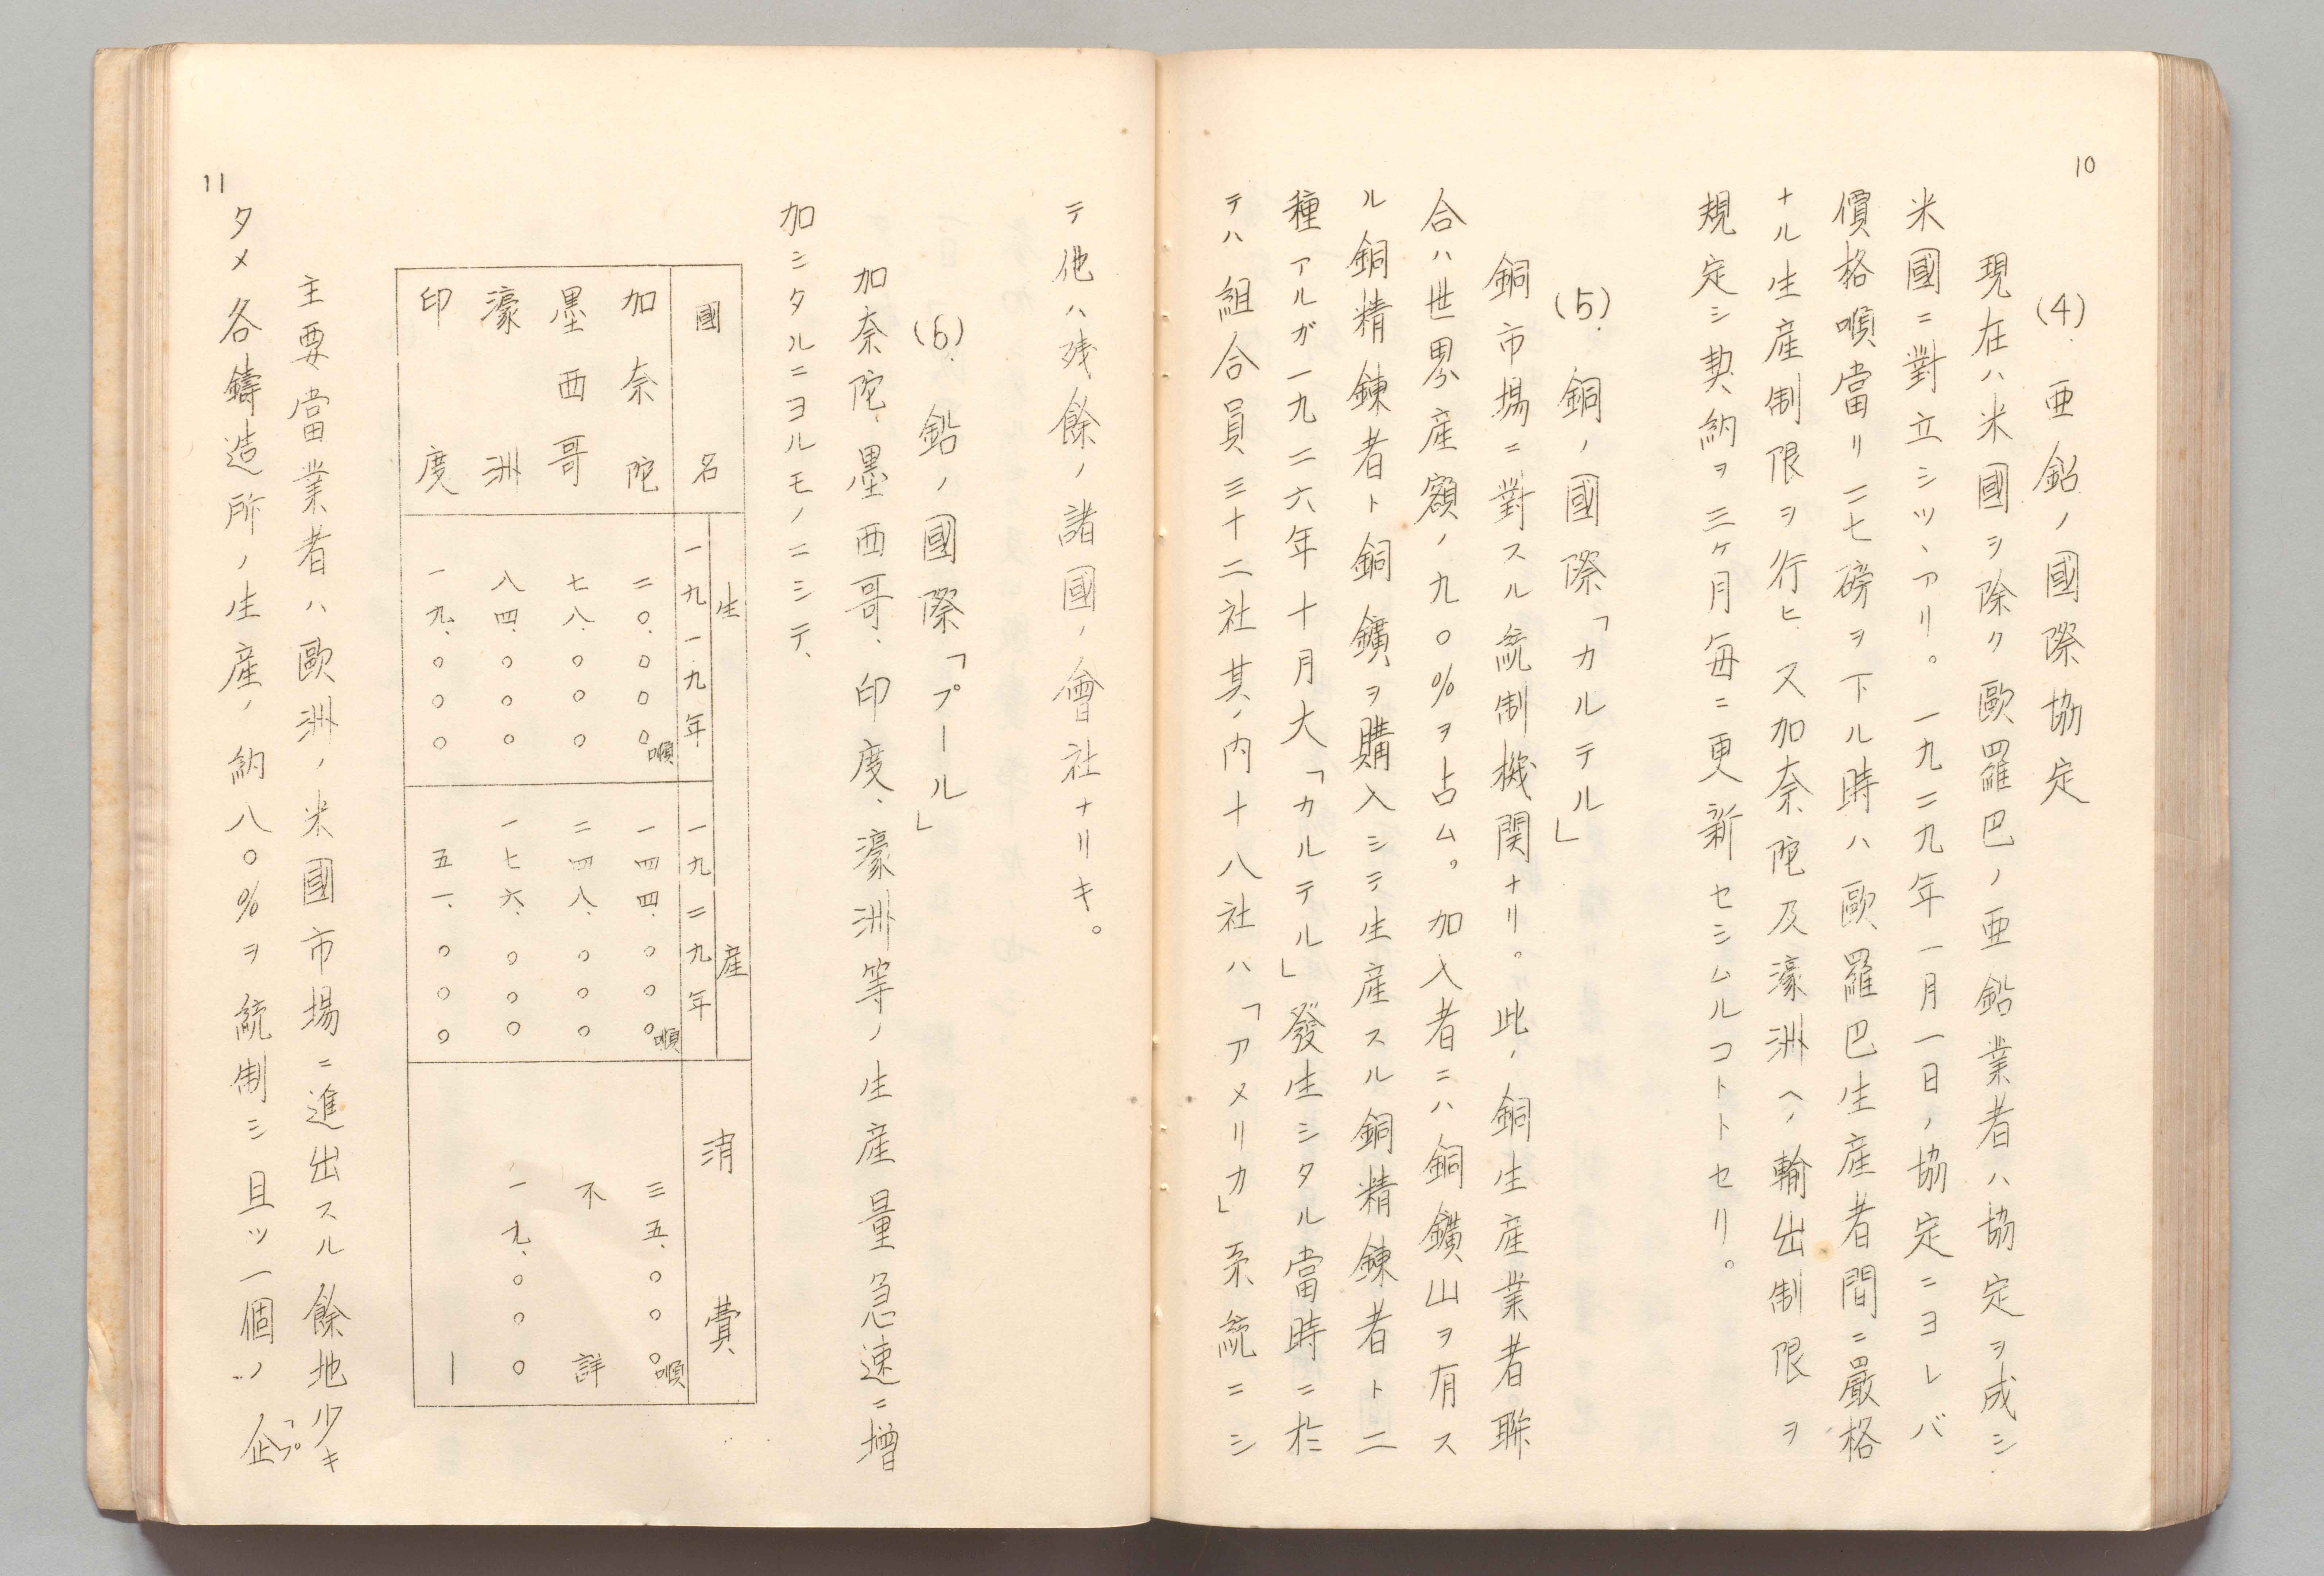 10
(4) 亜鉛ノ國際協定
現在ハ米國ヲ除ク歐羅巴ノ亜鉛業者ハ協定ヲ成シ
米國ニ對立シツヽアリ。一九二九年一月一日ノ協定ニヨレバ
價格噸當リ二七磅ヲ下ル時ハ歐羅巴生産者間ニ嚴格
ナル生産制限ヲ行ヒ又加奈陀及濠洲ヘノ輸出制限ヲ
規定シ契納ヲ三ヶ月毎ニ更新セシムルコトトセリ。
(5). 銅ノ國際「カルテル」
銅市場ニ對スル統制機関ナリ。此ノ銅生産業者聨
合ハ世界産額ノ九〇%ヲ占ム。加入者ニハ銅鑛山ヲ有ス
ル銅精錬者ト銅鑛ヲ購入シテ生産スル銅精錬者ト二
種アルガ一九二六年十月大「カルテル」發生シタル當時ニ於
テハ組合員三十二社其ノ内十八社ハ「アメリカ」系統ニシ
テ他ハ残餘ノ諸國ノ會社ナリキ。
(6). 鉛ノ國際「プール」
加奈陀、墨西哥、印度、濠洲等ノ生産量急速ニ増
加シタルニヨルモノニシテ、
國名 生産 消費
一九一九年 一九二九年
加奈陀 二〇.〇〇〇噸 一四四.〇〇〇噸 三五.〇〇〇噸
墨西哥 七八.〇〇〇 二四八.〇〇〇 不詳
濠洲 八四.〇〇〇 一七六.〇〇〇 一九.〇〇〇
印度 一九.〇〇〇 五一.〇〇〇 ―
主要當業者ハ歐洲ノ米國市場ニ進出スル餘地少キ
タメ各鑄造所ノ生産ノ納八〇%ヲ統制シ且ツ一個ノ「プ
企
11